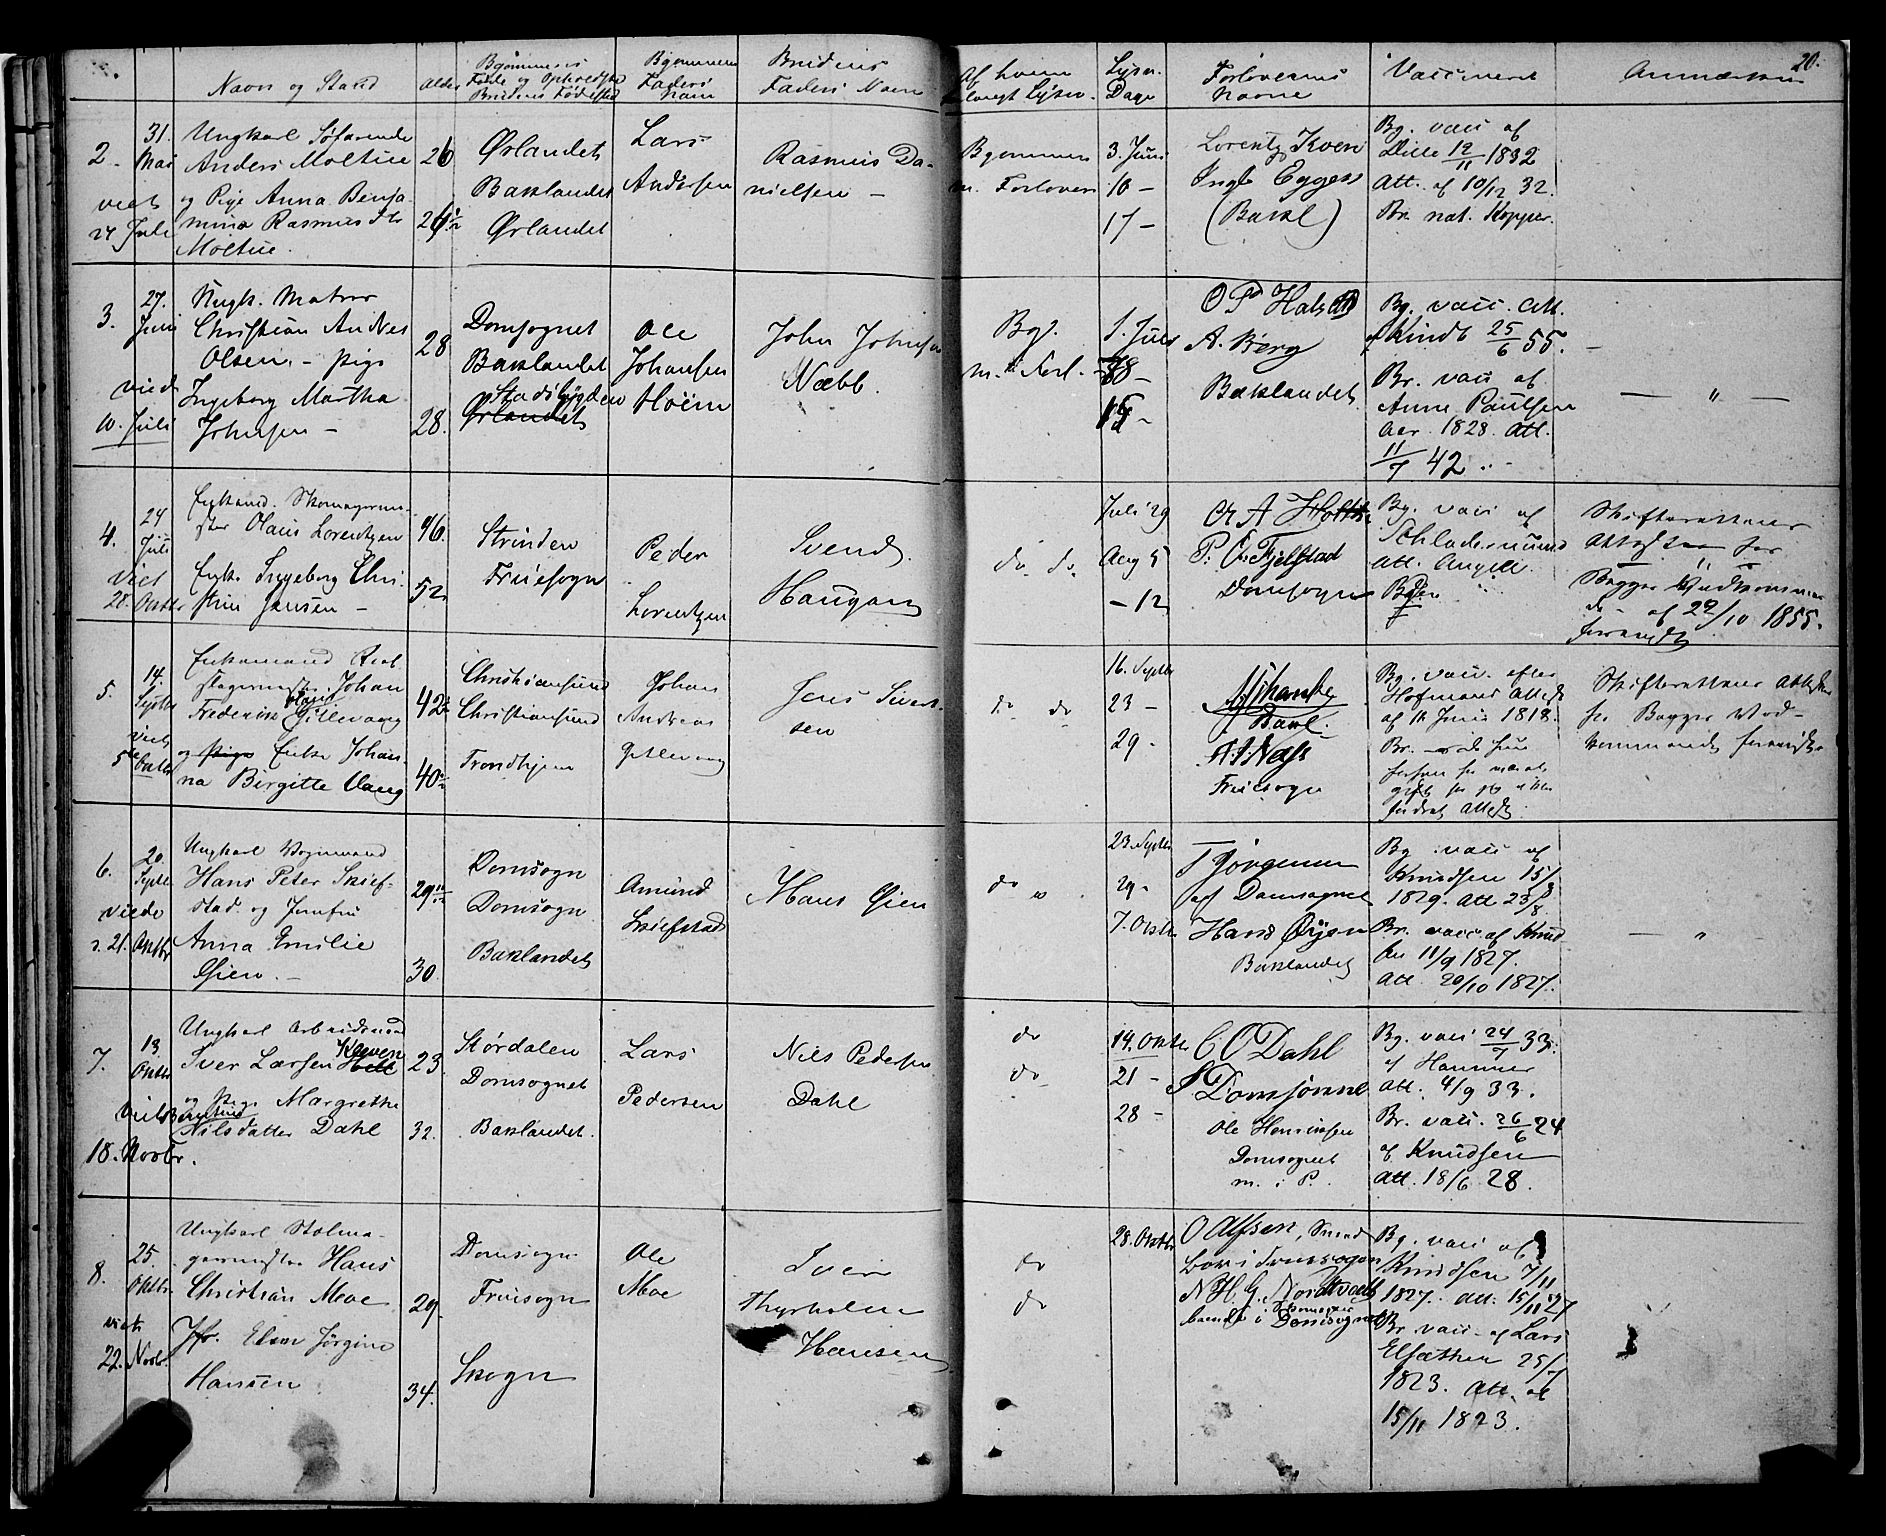 20.
Navn og Stand
Alder
Brudens Fødested
Faders Navn
Brudens
Faders Navn
Lysn. Dage
Forlovernes Navne
Vaccineret
2.
31. Mai
viet
24 Juli
Ungkarl Søfarende
Anders Moltue
og Pige Anna Benja-
mine Rasmusdtr
Moltue.
26
26 1/2
Ørlandet
Baklandet
Ørlandet
Lars
Andersen
Rasmus Da-
nielsen –
Bgommen
m. Forlover
3. Juni
10 –
17 –
Lorentz Kven
(Bakl)
Bg. vacc af
Lille 12/11 1832
Att. af 10/12 32.
Br. nat. Kopper.
3.
27. Juni
viet
10. Juli
Ungk. Matros
Christian Andres
Olsen. – pige
Ingeborg Martha
Johnsen –
28
28.
Domsognet
Baklandet
Stadsbygden
Ørlandet
Ole
Johansen
Hoem
John Johnsen
Næbb.
Bgg.
m. Forl.
1. Juli
8 –
15 –
A. Berg
Baklandet
Bg. vacc. Att.
Kindt 25/6 55.
Br. vacc af
Anne Paulsen
Aar 1828. Att.
11/7 42
– " –
4.
24 Juli
Viet
28. Oktbr
Enkemd. Skomagerme-
ster Olaus Lorentzen
Enke Ingeborg Chri-
stine Jansen –
46.
52
Strinden
Fruesogn
Peder
Lorentzen
Svend
Haugan
do do
Juli 29
Aug 5
– 12
P. Chr. Fjelstad
Domsogn
Bg. vacc af
Att. Angell
Skifterettens
Attester for
Begges Vedkommen-
de af 29/10 1855.
forevist
5.
14. Septbr
viet
5 Oktbr
Enkemand Reb-
slagermester Johan
Frederik Gillevang
og pige Enke Johan-
na Birgitte Vang
42
40
Christiansund
Christiansund
Trondhjem
Johan
Andreas
Gillevang
Jens Sivert-
sen
do do
16. Septbr
23 –
29 –
Bakl.
Fruesogn
Bg. vacc. efter
Hofmans Attest
af 12 Juni 1818.
Skifterettens Attester
for Begges Ved-
kommende forevist
6.
20. Septbr
viede
d. 21. Oktbr
Ungkarl Vognmand
Hans Peter Skief-
stad og Jomfru
Anna Emilie
Øien. –
29
30.
Domsogn
Domsogn
Baklandet
Amund
Skiefstad
Hans Øien
do "
23. Septbr
29 –
7. Oktbr
T Jørgensen
af Domsognet
Hans Øyen
Baklandet
Bg. vacc af
Knudsen 15/8
1829. Att 23/8
Br. vacc af Knud
sen 11/9 1827.
Att. 20/10 1827.
– "
7.
13. Oktbr
Viet
18. Novbr.
Ungkarl Arbeidsmand
Iver Larsen Kleven
og pige Margrethe
Berntine
Nilsdatter Dahl
23.
32.
Størdalen
Domsognet
Baklandet.
Lars
Pedersen
Nils Pedersen
Dahl
do
do
14. Oktbr
21 –
28 –
C O Dahl
Ole Henriksen
Domsognet
m. i P.
Bg. vacc 24/7 33.
af Hammer
Att. 4/9 33.
Br. vacc. 26/6 24
af Knudsen
Att. 18/6 28.
8.
25. Oktbr.
viet
22. Novbr.
Ungkarl Stolma-
germester Hans
Christian Moe
Jfr. Elen Jørgine
Hansen
29.
34.
Domsogn
Fruesogn
Skogn
Ole
Moe
Iver
Thyrholm
Hansen
do
do
28. Oktbr
O Alfsen, Smed
boer i Fruesogn
N H G Nordtvedt
boende i Domsognet
Bg. vacc af
Knudsen 7/11
1827. Att. 15/11 27
Br. vacc. af Lars
Elsæther 25/7
1823. Att. af
15/11 1823.